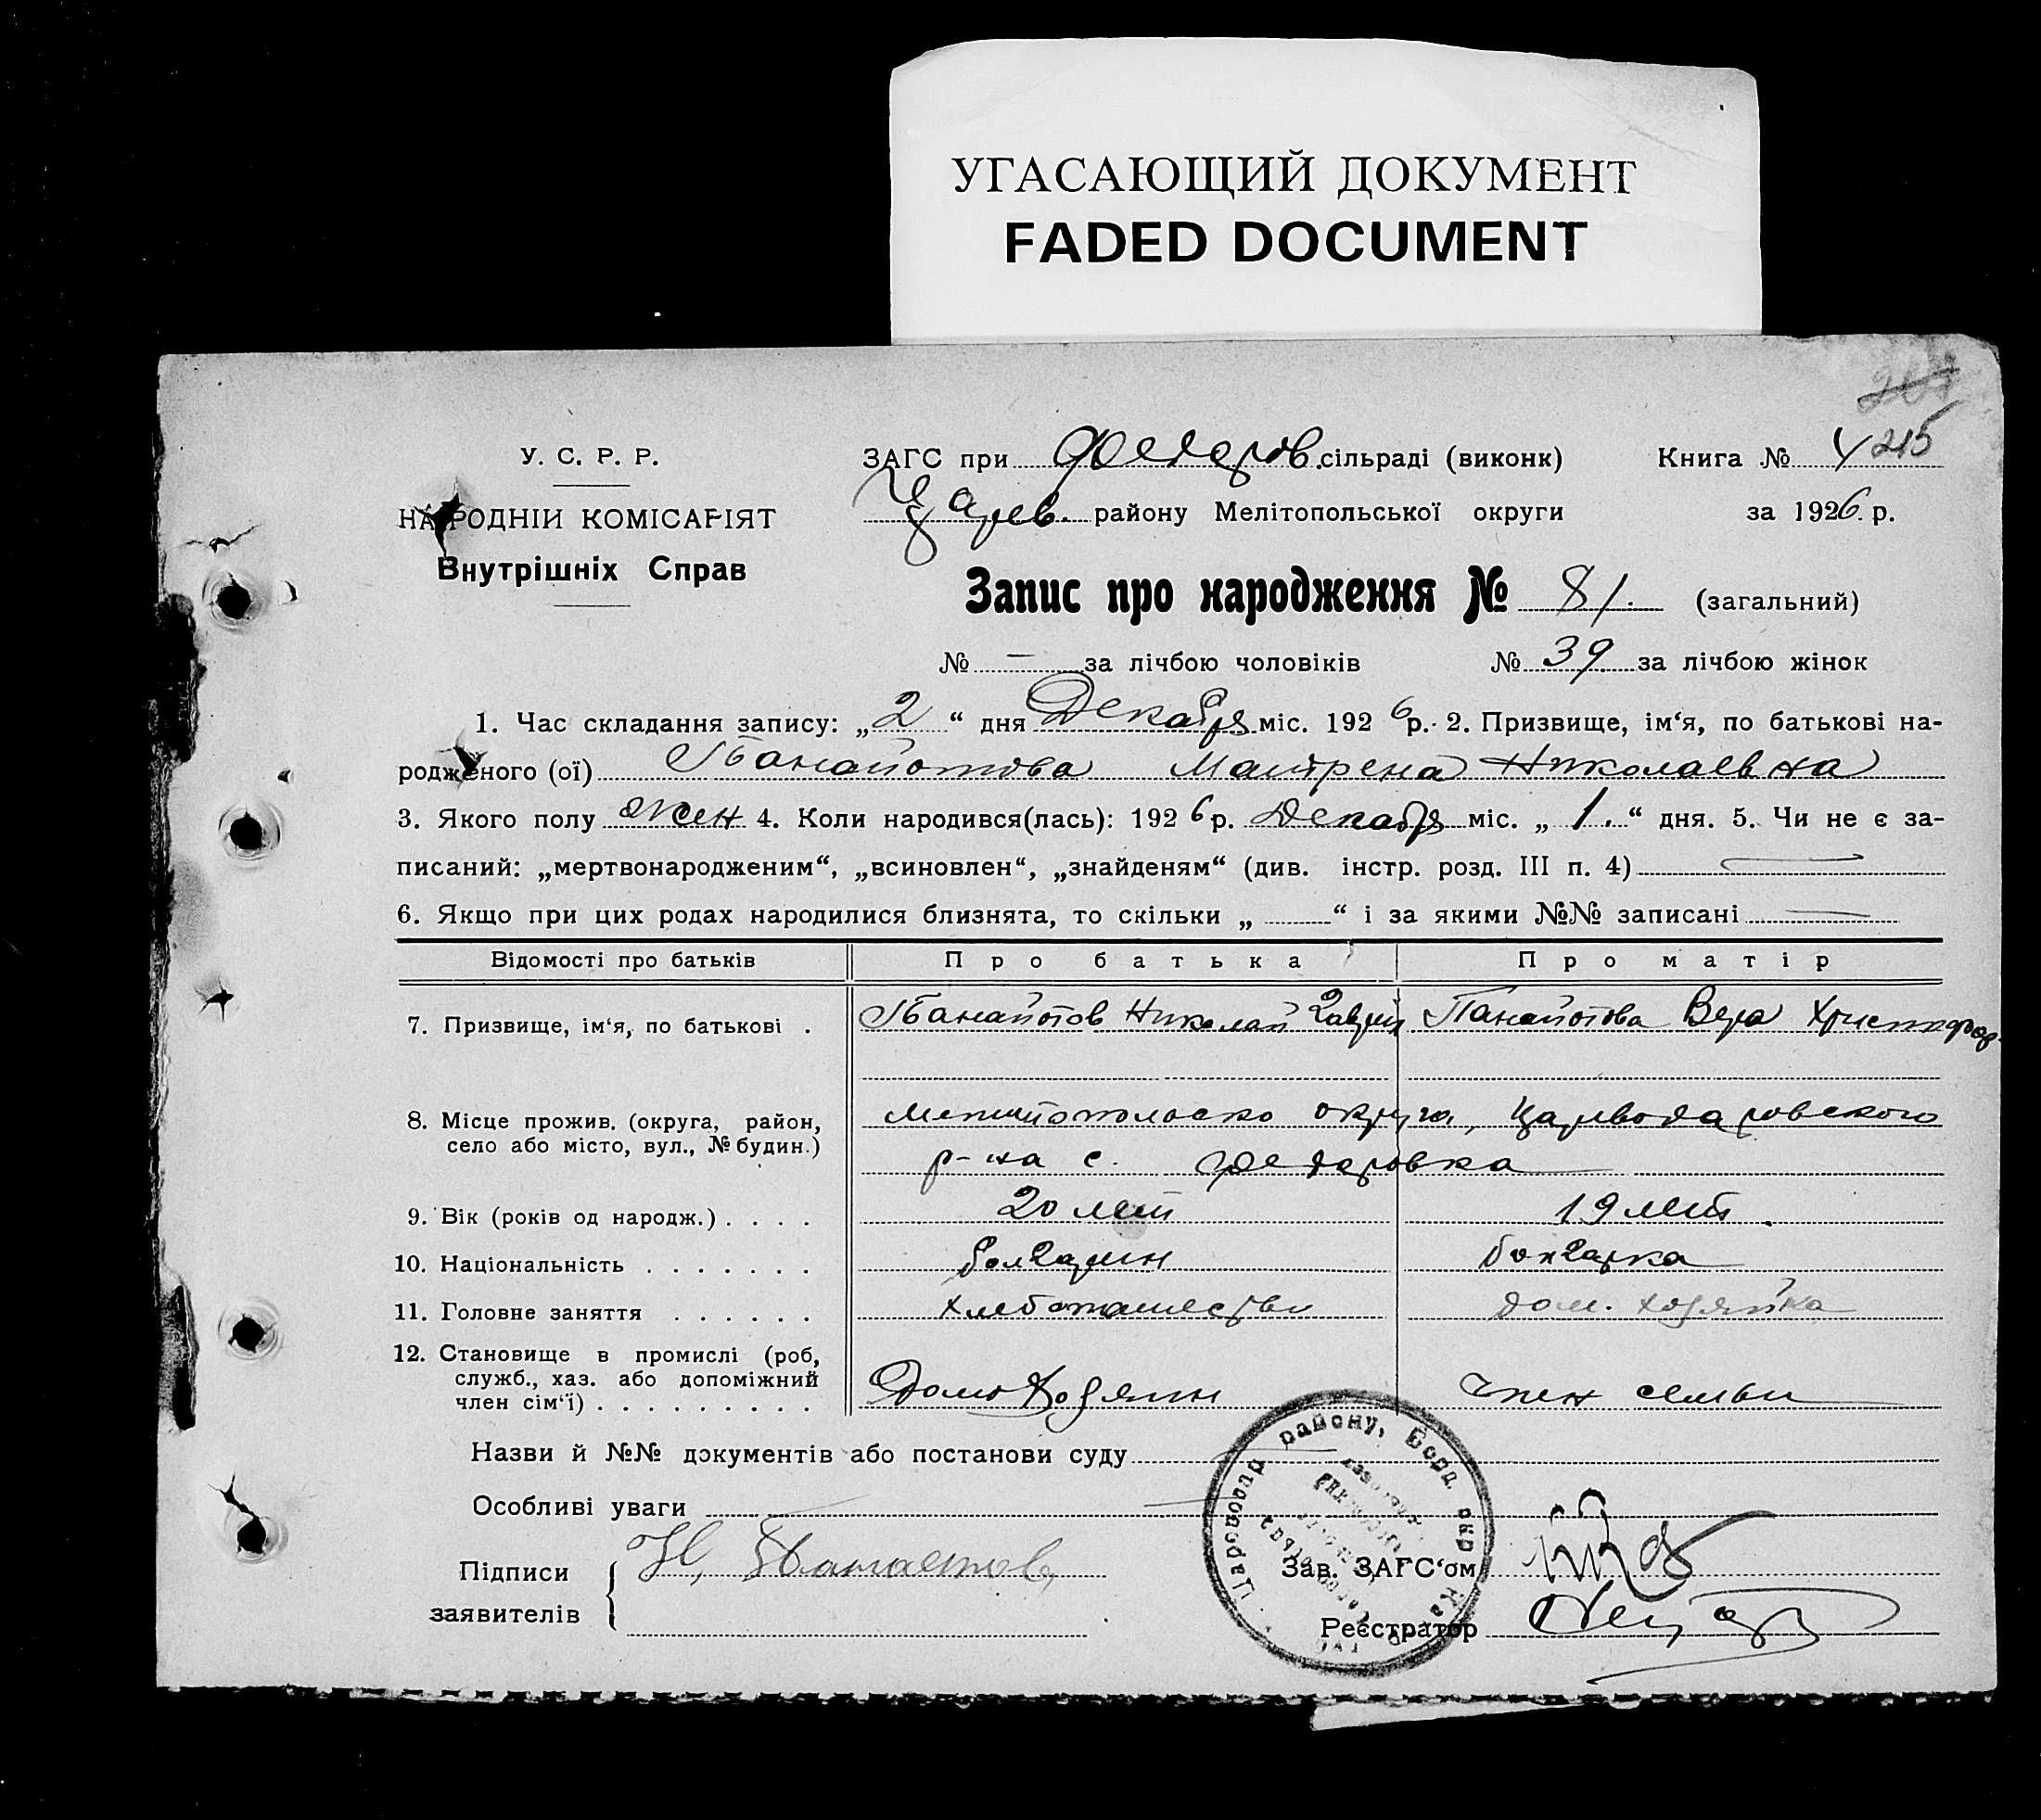 УГАСАЮЩИЙ ДОКУМЕНТ
FADED DOCUMENT
215
У. С. Р. Р.
НАРОДНІЙ КОМІСАРІЯТ
Внутрішніх Справ
ЗАГС при Федоров. сільраді (виконк) Книга №
Царев. району Мелітопольської округи за 1926 р.
Запис про народження № 81. (загальний)
№ — за лічбою чоловіків № 39 за лічбою жінок
1. Час складання запису: „2“ дня Декабря міс. 1926 р. 2. Призвище, ім‘я, по батькові на-
родженого (ої) Панайотова Матрена Николаевна
3. Якого полу жен 4. Коли народився(лась): 1926 р. Декабря міс. „1.“ дня. 5. Чи не є за-
писаний: „мертвонародженим“, „всиновлен“, „знайденям“ (див. інстр. розд. III п. 4) —
6. Якщо при цих родах народилися близнята, то скільки „ “ і за якими №№ записані —
Відомості про батьків Про батька Про матір
7. Призвище, ім‘я, по батькові . Панайотов Николай Гаврил Панайотова Вера Христофор
8. Місце прожив. (округа, район,
село або місто, вул., № будин.)
Мелитополско округа, Царводаровского
р-на с. Федоровка
9. Вік (років од народж.) . . . . 20 лет 19 лет.
10. Національність . . . . . . . болгарин болгарка
11. Головне заняття . . . . . . хлебопашество дом. хозяйка
12. Становище в промислі (роб,
служб., хаз. або допоміжний
член сім‘ї) . . . . . . . . . Домохозяин член семьи
Назви й №№ документів або постанови суду —
Особливі уваги —
Підписи
заявителів
Н. Панаетов
Зав. ЗАГС‘ом
Реєстратор
району,